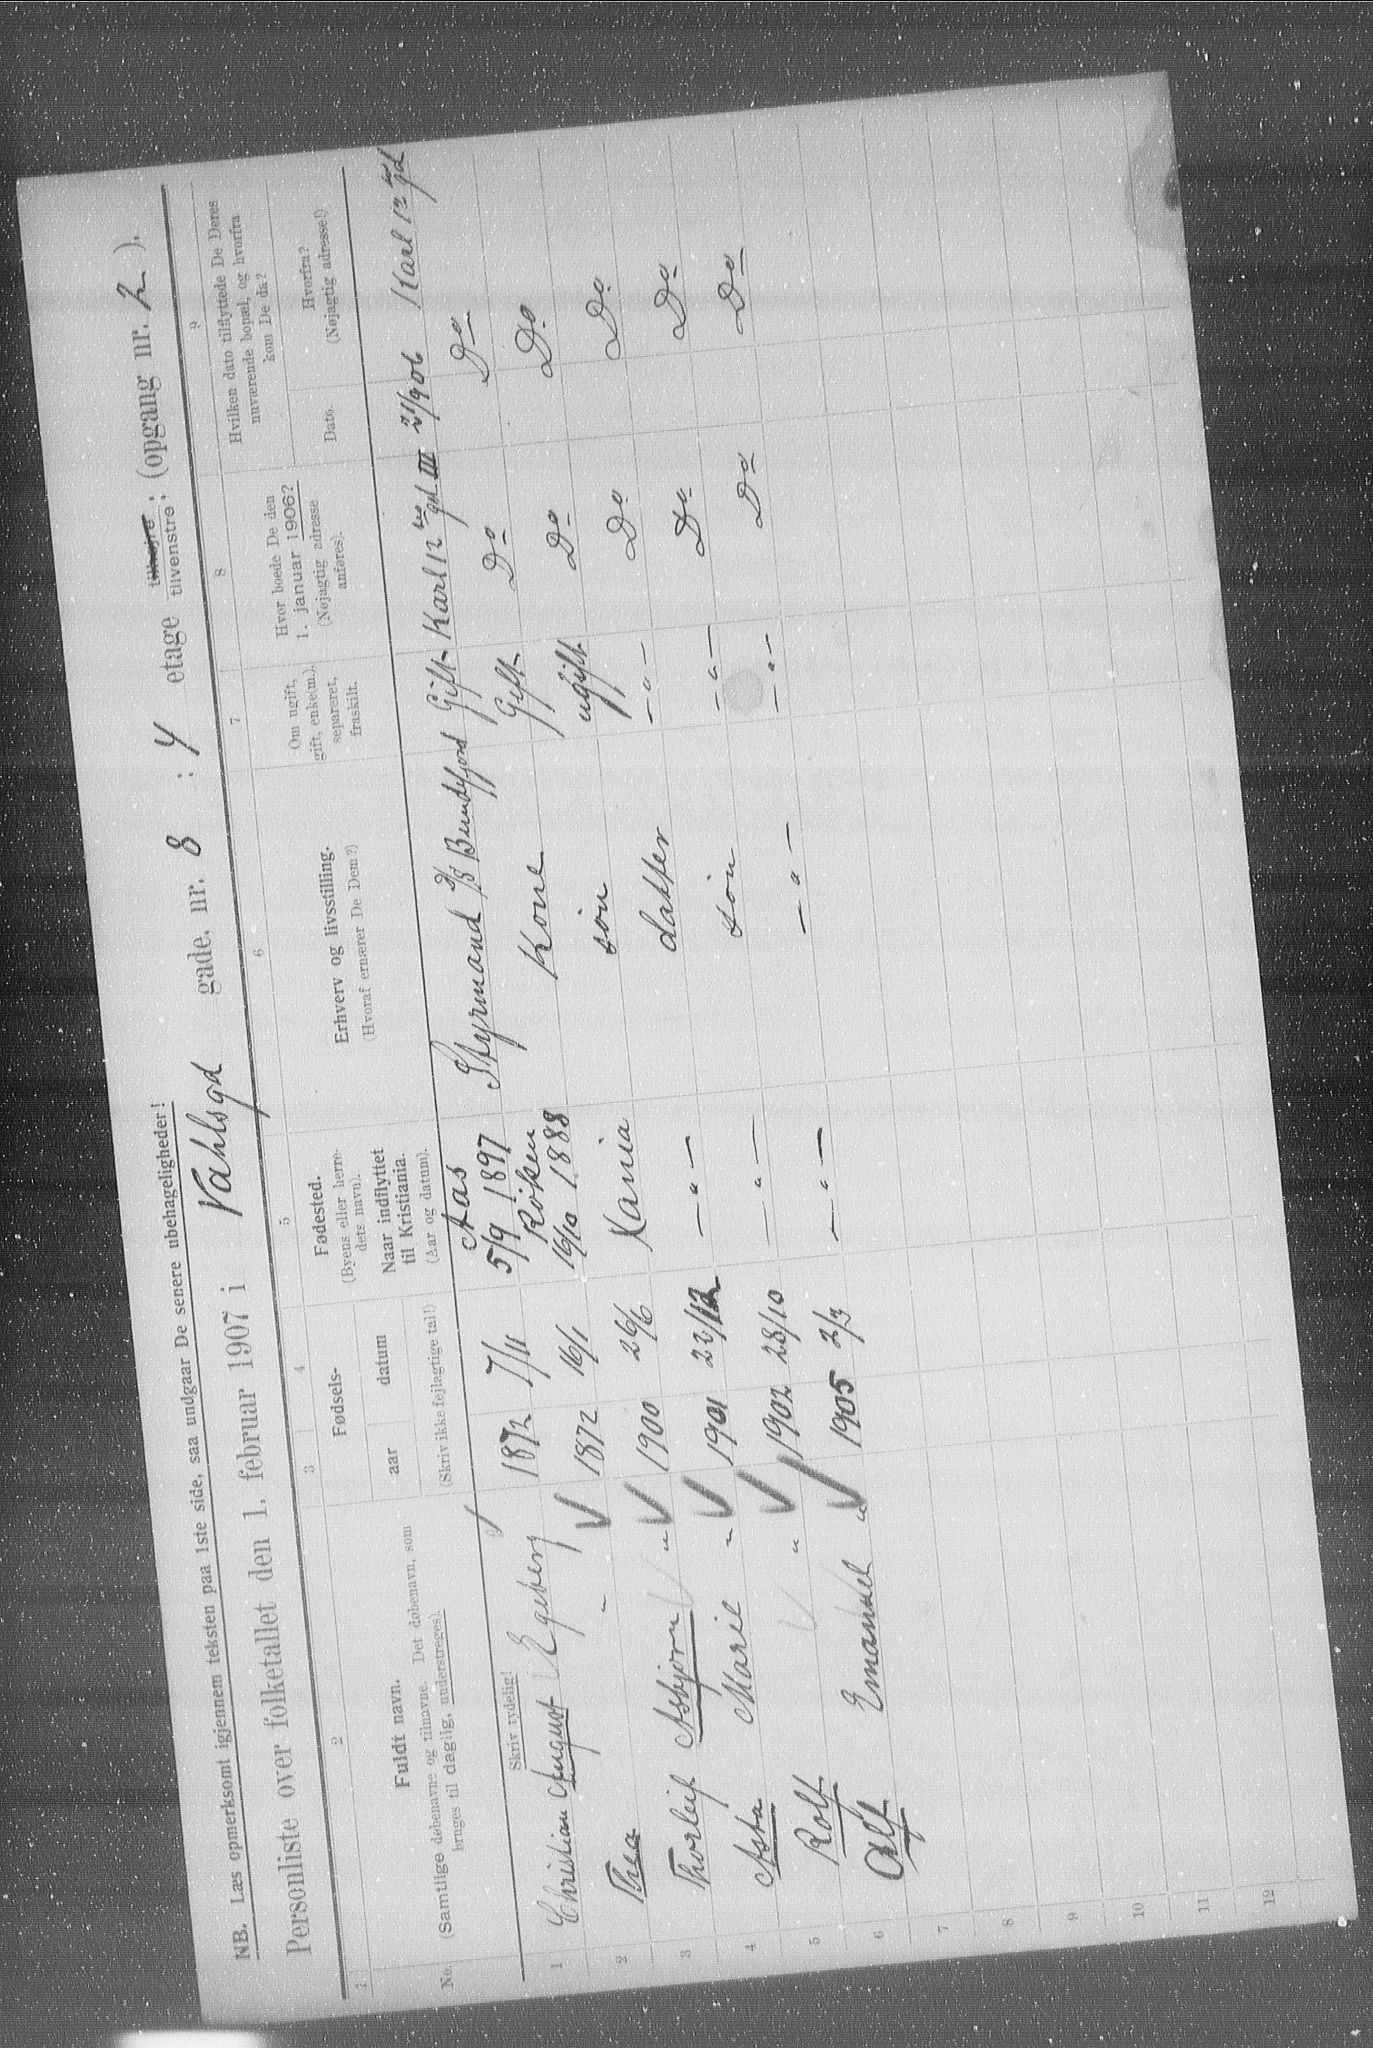 NB. Læs opmerksomt igjennem teksten paa 1ste side, saa undgaar De senere ubehageligheder!
Personliste over folketallet den 1. februar 1907 i Vahlsgd gade, nr. 8 : 4 etage tilhøjre, tilvenstre; (opgang nr. 2 ).
1. 2 3 4 5 6 7 8 9
No.
Fuldt navn.
(Samtlige døbenavne og tilnavne. Det døbenavn, som
bruges til daglig, understreges).
Skriv tydelig!
Fødsels-
aar datum
(Skriv ikke fejlagtige tal!)
Fødested.
(Byens eller herre-
dets navn).
Naar indflyttet
til Kristiania.
(Aar og datum).
Erhverv og livsstilling.
(Hvoraf ernærer De Dem?)
Om ugift,
gift, enke(m.),
separeret,
fraskilt.
Hvor boede De den
1. januar 1906?
(Nøjagtig adresse
anføres).
Hvilken dato tilflyttede De Deres
nuværende bopæl, og hvorfra
kom De da?
Dato. Hvorfra?
(Nøjagtig adresse!)
1 Christian August Egeberg 1872 7/11 Aas 5/9 1897 Styrmand D/S Bundefjord Gift Karl 12 tes gd III 21/9 06 Karl 12 tes gd
2 Thea " 1872 16/1 Röken 16/10 1888 Kone Gift Do Do
3 Thorleif Asbjørn " 1900 26/6 Xania sön ugift Do Do
4 Asta Marie " 1901 22/12 — " — datter — " — Do Do
5 Rolf " 1902 28/10 — " — sön — " — Do Do
6 Alf Emanuel " 1905 2/3 — " — — " — — " — Do Do
7
8
9
10
11
12